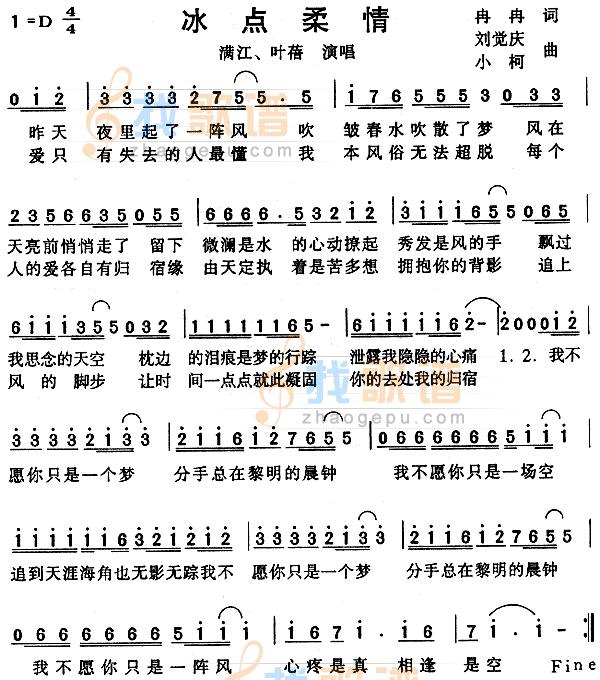 1=D 4/4 冰点柔情 冉冉 词
满江、叶蓓 演唱 刘觉庆 小柯 曲
0 1 2 3 3 3 3 3 2 7 5 5 . 5 1 7 6 5 5 5 3 0 3 3
昨天 夜里起了一阵风 吹 皱春水吹散了梦 风在
爱只 有失去的人最懂 我 本风俗无法超脱 每个
2 3 5 6 6 3 5 0 5 5 6 6 6 6 . 5 3 2 1 2 3 1 1 1 6 5 5 0 6 5
天亮前悄悄走了 留下 微澜是水 的心动撩起 秀发是风的手 飘过
人的爱各自有归 宿缘 由天定执 着是苦多想 拥抱你的背影 追上
6 1 1 1 3 5 5 0 3 2 1 1 1 1 1 1 1 6 5 - 6 1 1 1 1 1 6 2 - 2 0 0 0 1 2
我思念的天空 枕边 的泪痕是梦的行踪 泄露我隐隐的心痛 1.2.我不
风的脚步 让时 间一点点就此凝固 你的去处我的归宿
3 3 3 3 3 2 1 3 3 2 1 1 6 1 2 7 6 5 5 0 6 6 6 6 6 6 6 5 1 1
愿你只是一个梦 分手总在黎明的晨钟 我不愿你只是一场空
1 1 1 1 1 1 6 3 2 1 2 1 2 3 3 3 3 3 2 1 3 3 2 1 1 6 1 2 7 6 5 5
追到天涯海角也无影无踪我不 愿你只是一个梦 分手总在黎明的晨钟
0 6 6 6 6 6 6 6 5 1 1 1 1 6 7 1 . 7 6 1 2 . 1 - 1 . 1 -
我不愿你只是一阵风 心疼是真 相逢 是空 Fine
找歌谱
zhaogepu.com